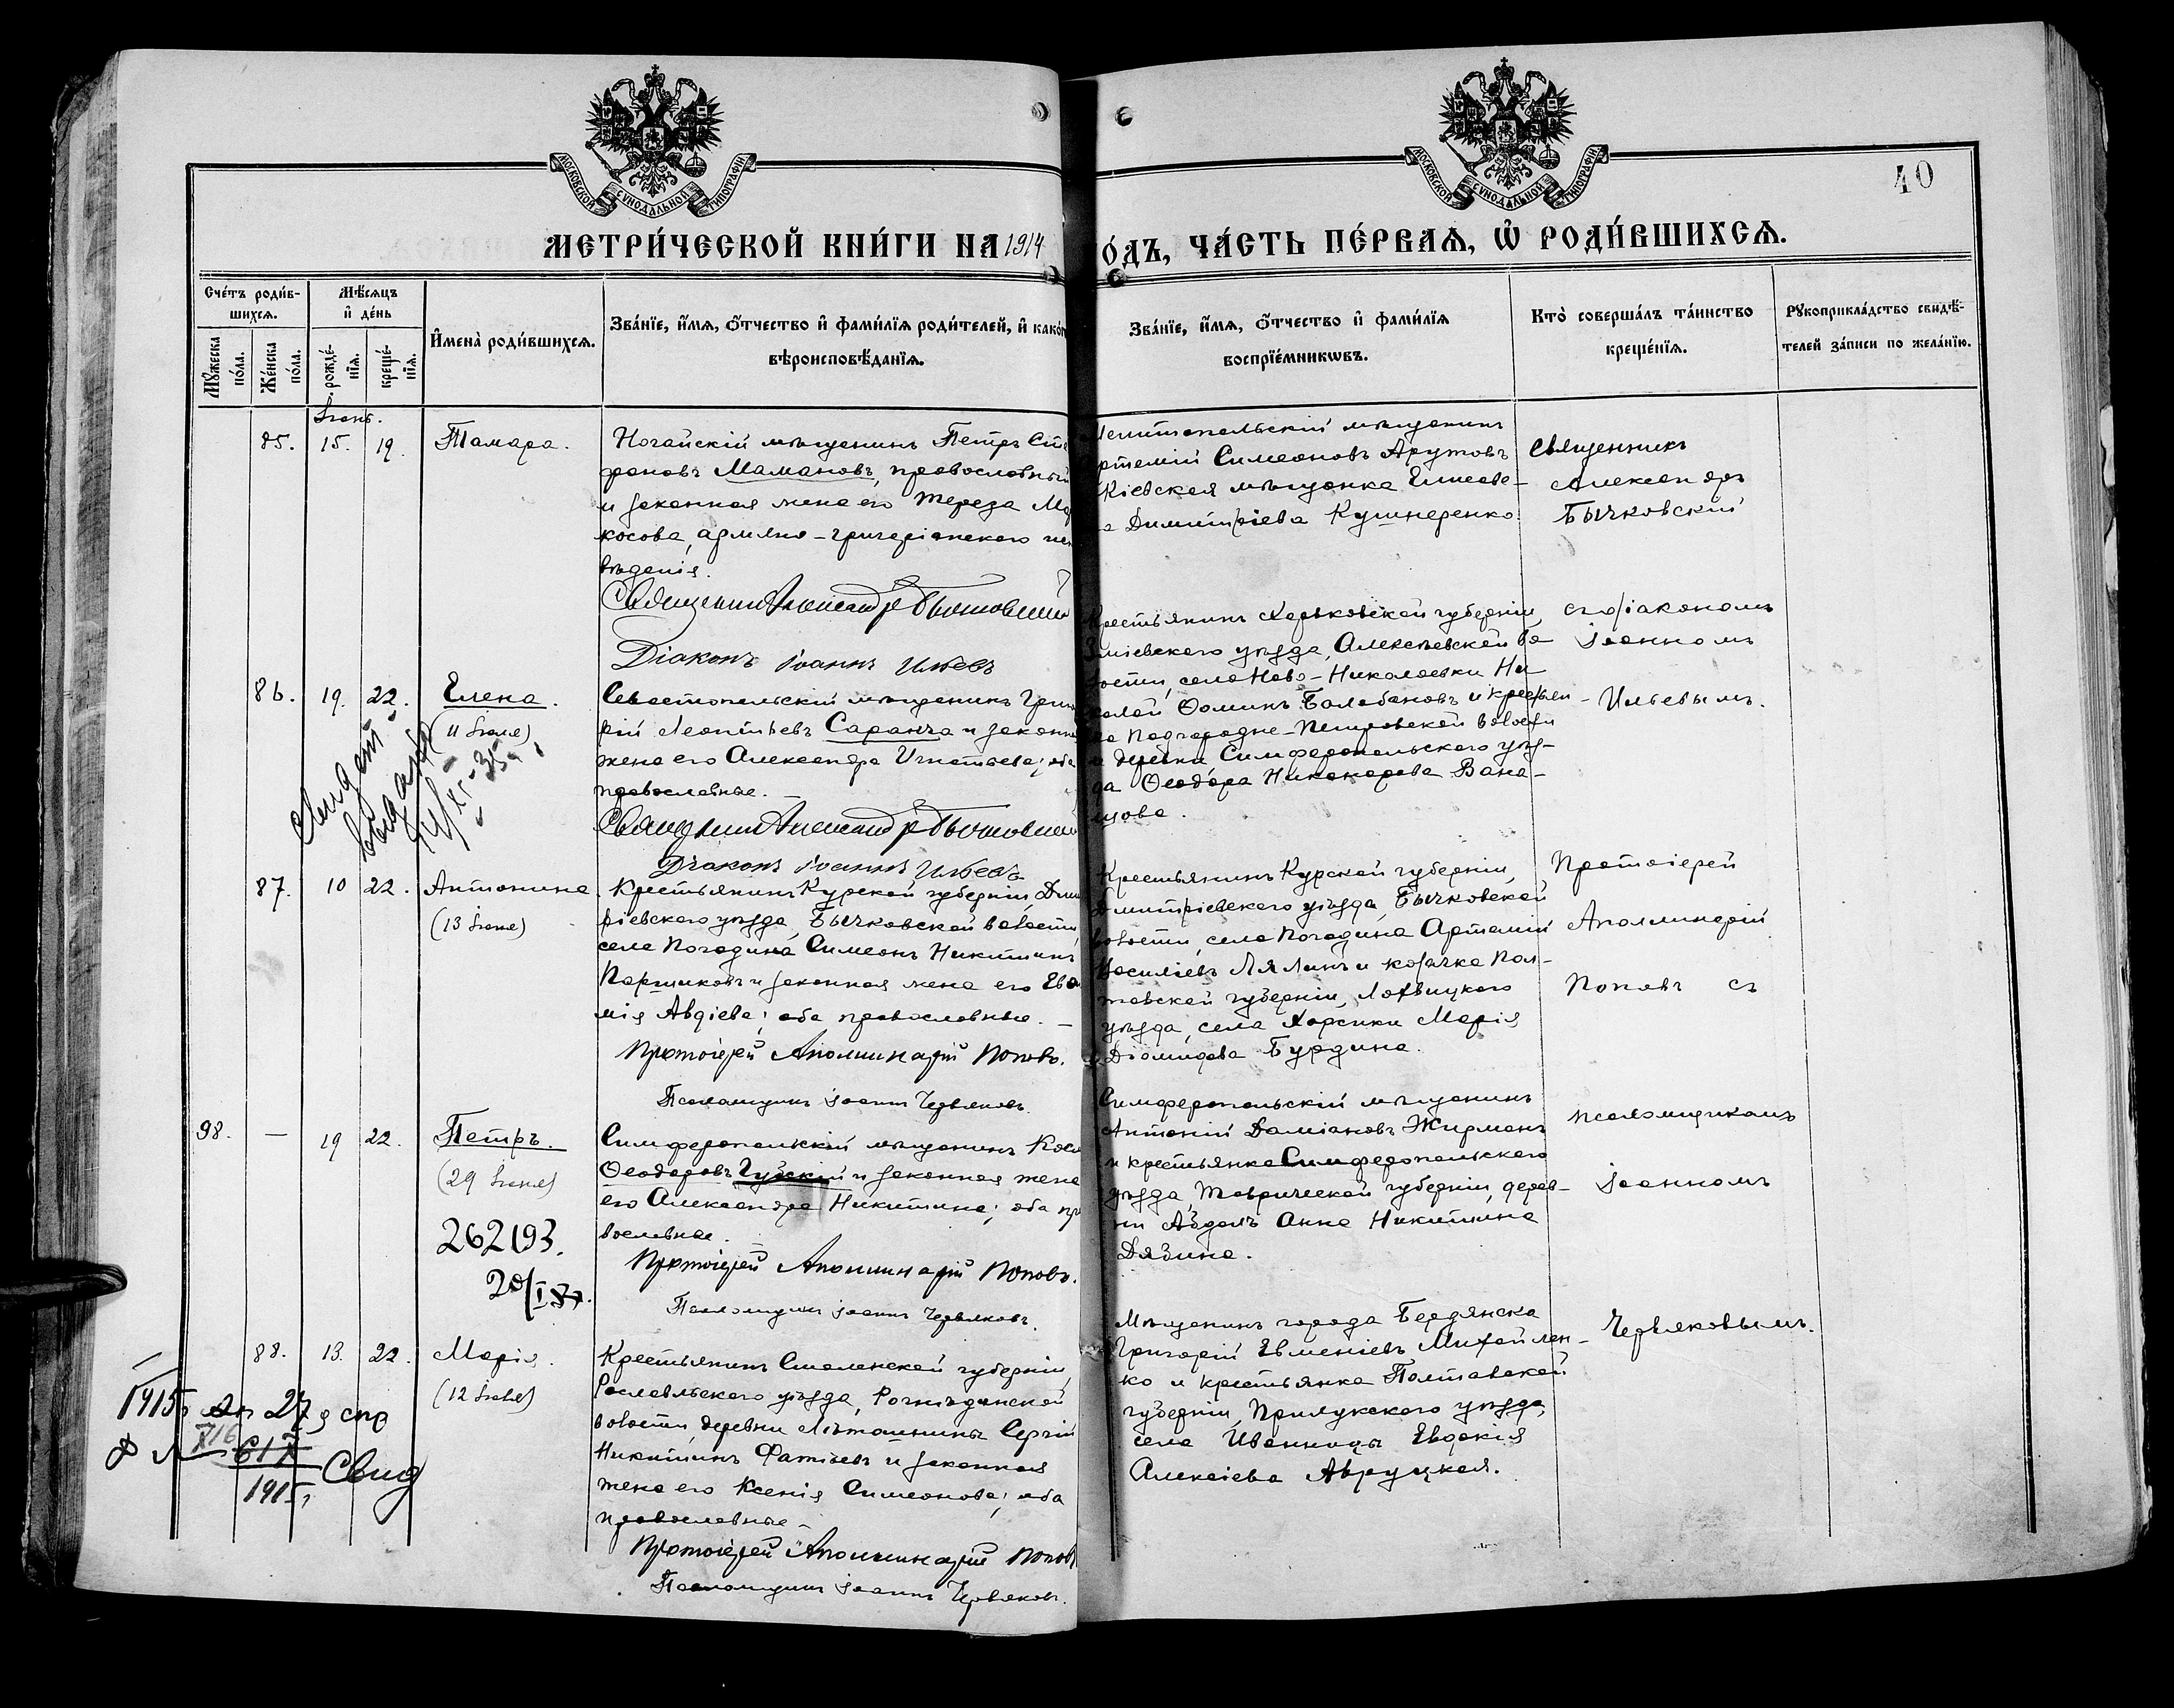 МОСКОВСКОЙ СѴНОДАЛЬНОЙ ТИПОГРАФІИ
МОСКОВСКОЙ СѴНОДАЛЬНОЙ ТИПОГРАФІИ
40
МЕТРИ́ЧЕСКОЙ КНИ́ГИ НА 1914
О́ДЪ, ЧА́СТЬ ПЕ́РВАѦ, Ѡ҆ РОДИ́ВШИХСѦ.
Сче́тъ роди́в-
шихсѧ.
Мѣ́сѧцъ
и҆ де́нь
Мꙋ́жеска
по́ла.
Же́нска
по́ла.
рожде́-
нїѧ.
креще́-
нїѧ.
И҆мена̀ роди́вшихсѧ.
Зва́нїе, и҆́мѧ, ѻ҆́тчество и҆ фами́лїѧ роди́телей, и҆ како́г
вѣроисповѣ́данїѧ.
Зва́нїе, и҆́мѧ, ѻ҆́тчество и҆ фами́лїѧ
воспрїе́мникѡвъ.
Кто̀ соверша́лъ та́инство
креще́нїѧ.
Рꙋкоприкла́дство свидѣ́-
телей за́писи по жела́нїю.
Іюнь.
85. 15. 19. Тамара.
Ногайскій мѣщанинъ Петръ Сте
фановъ Мамановъ, православный
и законная жена его Тереза Ма
косова, армяно-григоріанскаго ис
вѣданія.
Священникъ Александръ Бычковскій
Діаконъ Іоаннъ Ильевъ
елитопольскій мѣщанинъ
ртемій Симеоновъ Арутовъ
Кіевская мѣщанка Елисаве-
а Димитріева Кушнеренко
Священникъ
Александръ
Бычковскій
съ діакономъ
Іоанномъ
Ильевымъ.
86. 19. 22. Елена.
(11 Іюня)
Севастопольскій мѣщанинъ Григ
рій Леонтьевъ Саранча и законн
жена его Александра Игнатьева; оба
православные. —
Священникъ Александръ Бычковскій
Діаконъ Іоаннъ Ильевъ
рестьянинъ Харьковской губерніи,
міевскаго уѣзда, Алексѣевской во
ости, села Ново-Николаевки Ни-
колай Ѳоминъ Балабановъ и крестьян-
ка Подгородне-Петровской волости
и деревни Симферопольскаго уѣз-
да Ѳеодора Никанорова Вана-
цова.
87. 10 22. Антонина.
(13 Іюня)
Крестьянинъ Курской губерніи, Дми
ріевскаго уѣзда, Бычковской волости,
села Погодина Симеонъ Никитинъ
Паршиковъ и законная жена его Евѳ
мія Авдіева; оба православные. —
Протоіерей Аполлинарій Поповъ.
Псаломщикъ Іоаннъ Червяковъ.
Крестьянинъ Курской губерніи,
Дмитріевскаго уѣзда, Бычковской
волости, села Погодина Артемій
Василіевъ Лялинъ и козачка Пол-
тавской губерніи, Лохвицкаго
уѣзда, села Харсики Марія
Діомидова Бурдина.
Протоіерей
Аполлинарій
Поповъ съ
псаломщикомъ
Іоанномъ
Червяковымъ.
98. — 19 22. Петръ.
(29 Іюня)
262193.
Симферопольскій мѣщанинъ Косм
Ѳеодоровъ Губскій и законная жена
его Александра Никитина; оба пр
вославные.
Протоіерей Аполлинарій Поповъ.
Псаломщикъ Іоаннъ Червяковъ.
Симферопольскій мѣщанинъ
Антоній Даміановъ Жирманъ
и крестьянка Симферопольскаго
уѣзда, Таврической губерніи, дерев-
ни Абдалъ Анна Никитина
Дязина.
88. 13. 22. Марія.
(12 Іюля)
Крестьянинъ Смоленской губерніи
Рославльскаго уѣзда, Рогнѣдинской
волости, деревни Лѣтошники Сергій
Никитинъ Фатьевъ и законная
жена его Ксенія Симеонова; оба
православные —
Протоіерей Аполлинарій Поповъ
Псаломщикъ Іоаннъ Червяковъ.
Мѣщанинъ города Бердянска
Григорій Евменіевъ Михайлен-
ко и крестьянка Полтавской
губерніи, Прилукскаго уѣзда,
села Иваницы Евдокія
Алексіева Авруцкая.
1915
1915
Свид